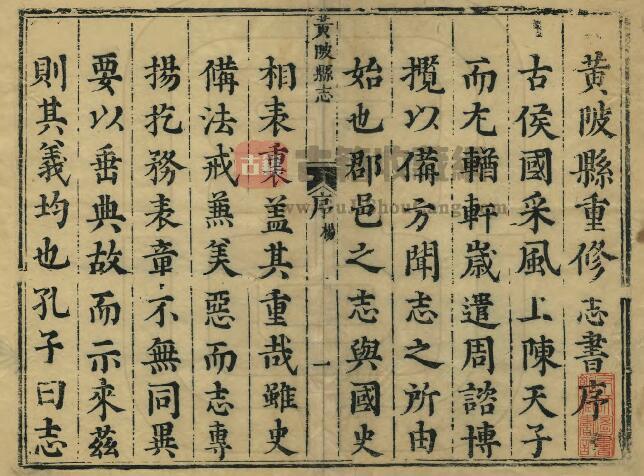 黃陂縣重修志書序
古侯國采風上陳天子
而尤輶軒歲遣周諮博
攬以備方聞志之所由
始也郡邑之志與國史
黃陂縣志
序
楊
一
相表裏蓋其重哉雖史
備法戒蒹美惡而志專
揚扢務表章不無同異
要以垂典故而示來茲
則其義均也孔子曰志
古籍